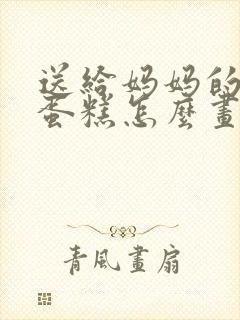 送给妈妈的
蛋糕怎麼畫
青風畫扇